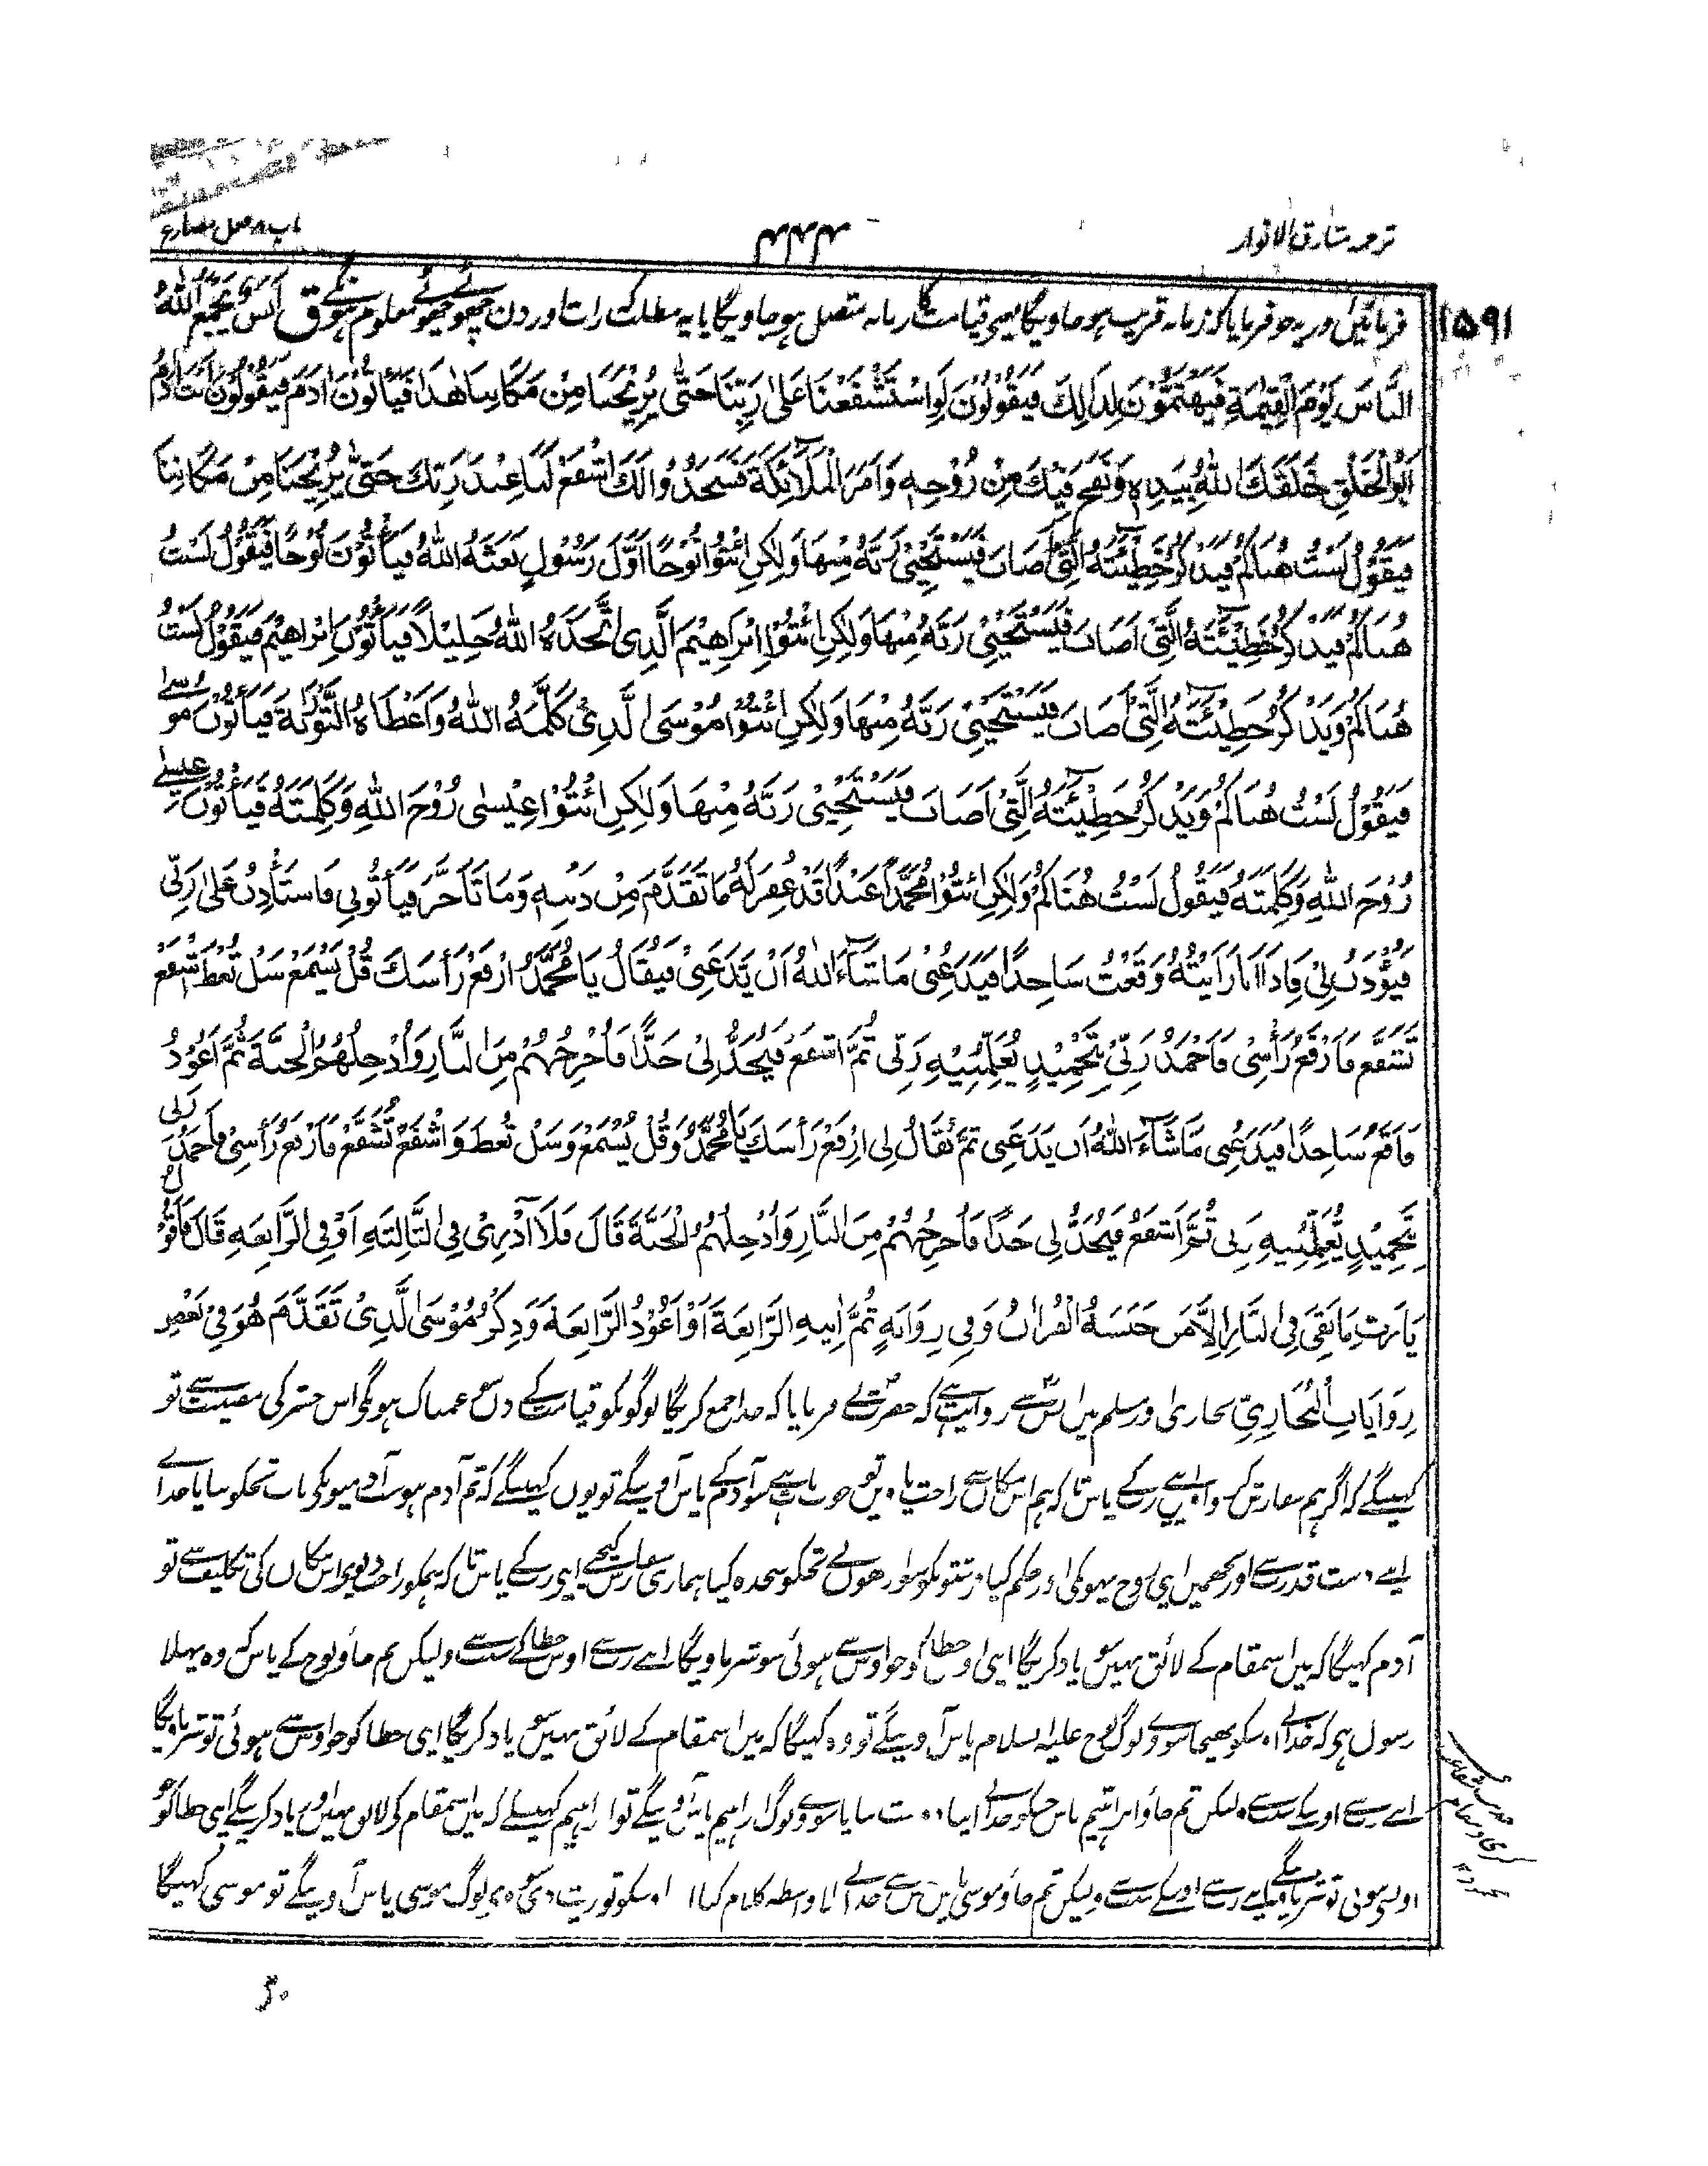 ترجمہ مشارق الانوار
۴۴۴
باب ۸ فصل مضارع
۱۵۹۱
فرمائیں اور یہ جو فرمایا کہ زمانہ قریب ہو جاویگا یعنی قیامت کا زمانہ متصل ہو جاویگا یا یہ مطلب کہ رات اور دن چھوٹے چھوٹے معلوم ہونگے ق اَنَسٌ يَجْمَعُ اللّٰهُ
النَّاسَ يَوْمَ الْقِيٰمَةِ فَيَهْتَمُّوْنَ لِذٰلِكَ فَيَقُوْلُوْنَ لَوِ اسْتَشْفَعْنَا عَلٰى رَبِّنَا حَتّٰى يُرِيْحَنَا مِنْ مَكَانِنَا هٰذَا فَيَأْتُوْنَ اٰدَمَ فَيَقُوْلُوْنَ اَنْتَ اٰدَمُ
اَبُو الْخَلْقِ خَلَقَكَ اللّٰهُ بِيَدِهٖ وَنَفَخَ فِيْكَ مِنْ رُوْحِهٖ وَاَمَرَ الْمَلَآئِكَةَ فَسَجَدُوْا لَكَ اشْفَعْ لَنَا عِنْدَ رَبِّكَ حَتّٰى يُرِيْحَنَا مِنْ مَكَانِنَا
فَيَقُوْلُ لَسْتُ هُنَاكُمْ فَيَذْكُرُ خَطِيْئَتَهُ الَّتِىْ اَصَابَ فَيَسْتَحْيِىْ رَبَّهُ مِنْهَا وَلٰكِنِ ائْتُوْا نُوْحًا اَوَّلَ رَسُوْلٍ بَعَثَهُ اللّٰهُ فَيَأْتُوْنَ نُوْحًا فَيَقُوْلُ لَسْتُ
هُنَاكُمْ فَيَذْكُرُ خَطِيْئَتَهُ الَّتِىْ اَصَابَ فَيَسْتَحْيِىْ رَبَّهُ مِنْهَا وَلٰكِنِ ائْتُوْا اِبْرٰهِيْمَ الَّذِى اتَّخَذَهُ اللّٰهُ خَلِيْلًا فَيَأْتُوْنَ اِبْرَاهِيْمَ فَيَقُوْلُ لَسْتُ
هُنَاكُمْ وَيَذْكُرُ خَطِيْئَتَهُ الَّتِىْ اَصَابَ فَيَسْتَحْيِىْ رَبَّهُ مِنْهَا وَلٰكِنِ ائْتُوْا مُوْسَى الَّذِىْ كَلَّمَهُ اللّٰهُ وَاَعْطَاهُ التَّوْرٰىةَ فَيَأْتُوْنَ مُوْسٰى
فَيَقُوْلُ لَسْتُ هُنَاكُمْ وَيَذْكُرُ خَطِيْئَتَهُ الَّتِىْ اَصَابَ فَيَسْتَحْيِىْ رَبَّهُ مِنْهَا وَلٰكِنِ ائْتُوْا عِيْسٰى رُوْحَ اللّٰهِ وَكَلِمَتَهُ فَيَأْتُوْنَ عِيْسٰى
رُوْحَ اللّٰهِ وَكَلِمَتَهُ فَيَقُوْلُ لَسْتُ هُنَاكُمْ وَلٰكِنِ ائْتُوْا مُحَمَّدًا عَبْدًا قَدْ غُفِرَ لَهُ مَا تَقَدَّمَ مِنْ ذَنْبِهٖ وَمَا تَأَخَّرَ فَيَأْتُوْنِى فَاسْتَأْذِنُ عَلٰى رَبِّى
فَيُؤْذَنُ لِىْ فَاِذَا اَنَا رَاَيْتُهُ وَقَعْتُ سَاجِدًا فَيَدَعُنِىْ مَا شَآءَ اللّٰهُ اَنْ يَّدَعَنِىْ فَيُقَالُ يَا مُحَمَّدُ ارْفَعْ رَأْسَكَ قُلْ يُسْمَعْ سَلْ تُعْطَ اشْفَعْ
تُشَفَّعْ فَاَرْفَعُ رَأْسِىْ فَاَحْمَدُ رَبِّىْ بِتَحْمِيْدٍ يُعَلِّمُنِيْهِ رَبِّى ثُمَّ اَشْفَعُ فَيَحُدُّ لِىْ حَدًّا فَاُخْرِجُهُمْ مِنَ النَّارِ وَاُدْخِلُهُمُ الْجَنَّةَ ثُمَّ اَعُوْدُ
فَاَقَعُ سَاجِدًا فَيَدَعُنِى مَا شَآءَ اللّٰهُ اَنْ يَدَعَنِى ثُمَّ يُقَالُ لِى ارْفَعْ رَأْسَكَ يَا مُحَمَّدُ وَقُلْ يُسْمَعْ وَسَلْ تُعْطَ وَاشْفَعْ تُشَفَّعْ فَاَرْفَعُ رَأْسِىْ فَاَحْمَدُ رَبِّى
بِتَحْمِيْدٍ يُعَلِّمُنِيْهِ رَبِّى ثُمَّ اَشْفَعُ فَيَحُدُّ لِى حَدًّا فَاُخْرِجُهُمْ مِنَ النَّارِ وَاُدْخِلُهُمُ الْجَنَّةَ قَالَ فَلَا اَدْرِىْ فِى الثَّالِثَةِ اَوْ فِى الرَّابِعَةِ قَالَ فَاَقُوْلُ
يَا رَبِّ مَا بَقِىَ فِى النَّارِ اِلَّا مَنْ حَبَسَهُ الْقُرْاٰنُ وَفِى رِوَايَةٍ ثُمَّ اٰتِيهِ الرَّابِعَةَ اَوْ اَعُوْدُ الرَّابِعَةَ وَذِكْرُ مُوْسَى الَّذِىْ تَقَدَّمَ هُوَ فِىْ بَعْضِ
رِوَايَاتِ الْبُخَارِيِّ بخاری اور مسلم میں انسؓ سے روایت ہے کہ حضرتؐ نے فرمایا کہ خدا جمع کریگا لوگونکو قیامت کے دن سو غمناک ہونگے اس حشر کی مصیبت سے تو
کہینگے کہ اگر ہم سفارش کرواویں اپنے رب کے پاس تا کہ ہم اس مکان سے راحت پاویں تو خوب بات ہے سو آدم کے پاس آوینگے تو یوں کہینگے کہ تم آدم ہو سب آدمیونکی باپ تجکو بنایا خدا نے
اپنے دست قدرت سے اور تجھمیں اپنی روح پھونکی اور حکم کیا فرشتونکو سو اونھوں نے تجکو سجدہ کیا ہماری سفارش کیجئے اپنے رب کے پاس تا کہ ہمکو راحت دیوے اس مکان کی تکلیف سے تو
آدم کہیگا کہ میں اس مقام کے لائق نہیں سو یاد کریگا اپنی اوس خطا کو جو اوس سے ہوئی سو شرماویگا اپنے رب سے اوس خطا کے سبب سے ولیکن تم جاؤ نوح کے پاس کہ وہ پہلا
رسول ہی کہ خدا نے اوسکو بھیجا سو وے لوگ نوح علیہ السلام پاس آوینگے تو وہ کہیگا کہ میں اس مقام کے لائق نہیں سو یاد کریگا اپنی خطا کو جو اوس سے ہوئی تو شرماویگا
اپنے رب سے اوسکے سبب سے ولیکن تم جاؤ ابراہیم پاس جسکو خدا نے اپنا دوست بنایا سو وے لوگ ابراہیم پاس آوینگے تو ابراہیم کہینگے کہ میں اس مقام کی لائق نہیں اور یاد کرینگے اپنی خطا کو جو
اون سے ہوئی تو شرماوینگے اپنے رب سے اوسکے سبب سے ولیکن تم جاؤ موسیٰ پاس جس سے خدا نے بلا واسطہ کلام کیا اور اوسکو توریت دی سو وے لوگ موسیٰ پاس آوینگے تو موسیٰ کہیگا